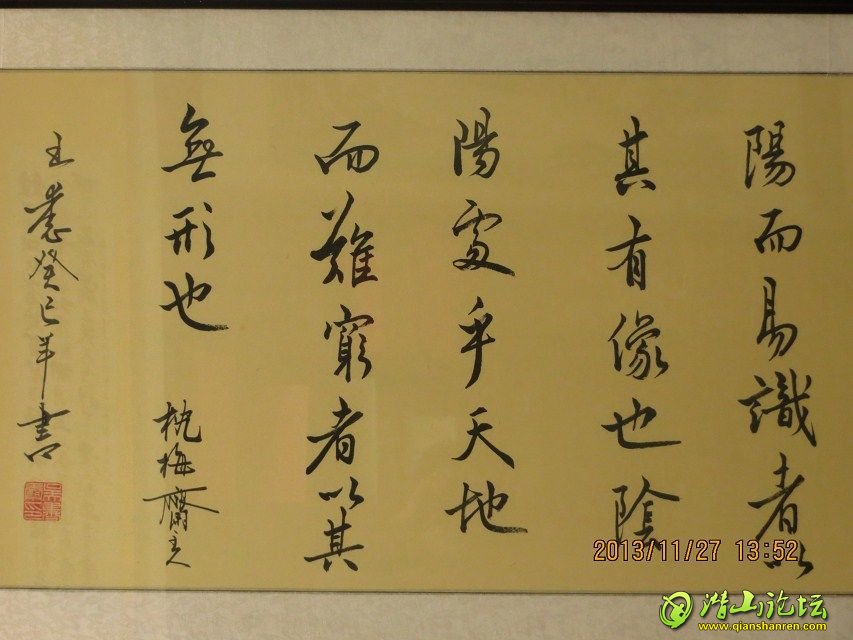 陽而易識者以
其有像也陰
陽處乎天地
而難窮者以其
無形也
枕梅齋主人
癸巳年書
2013/11/27 13:52
潜山论坛
www.qianshanren.com